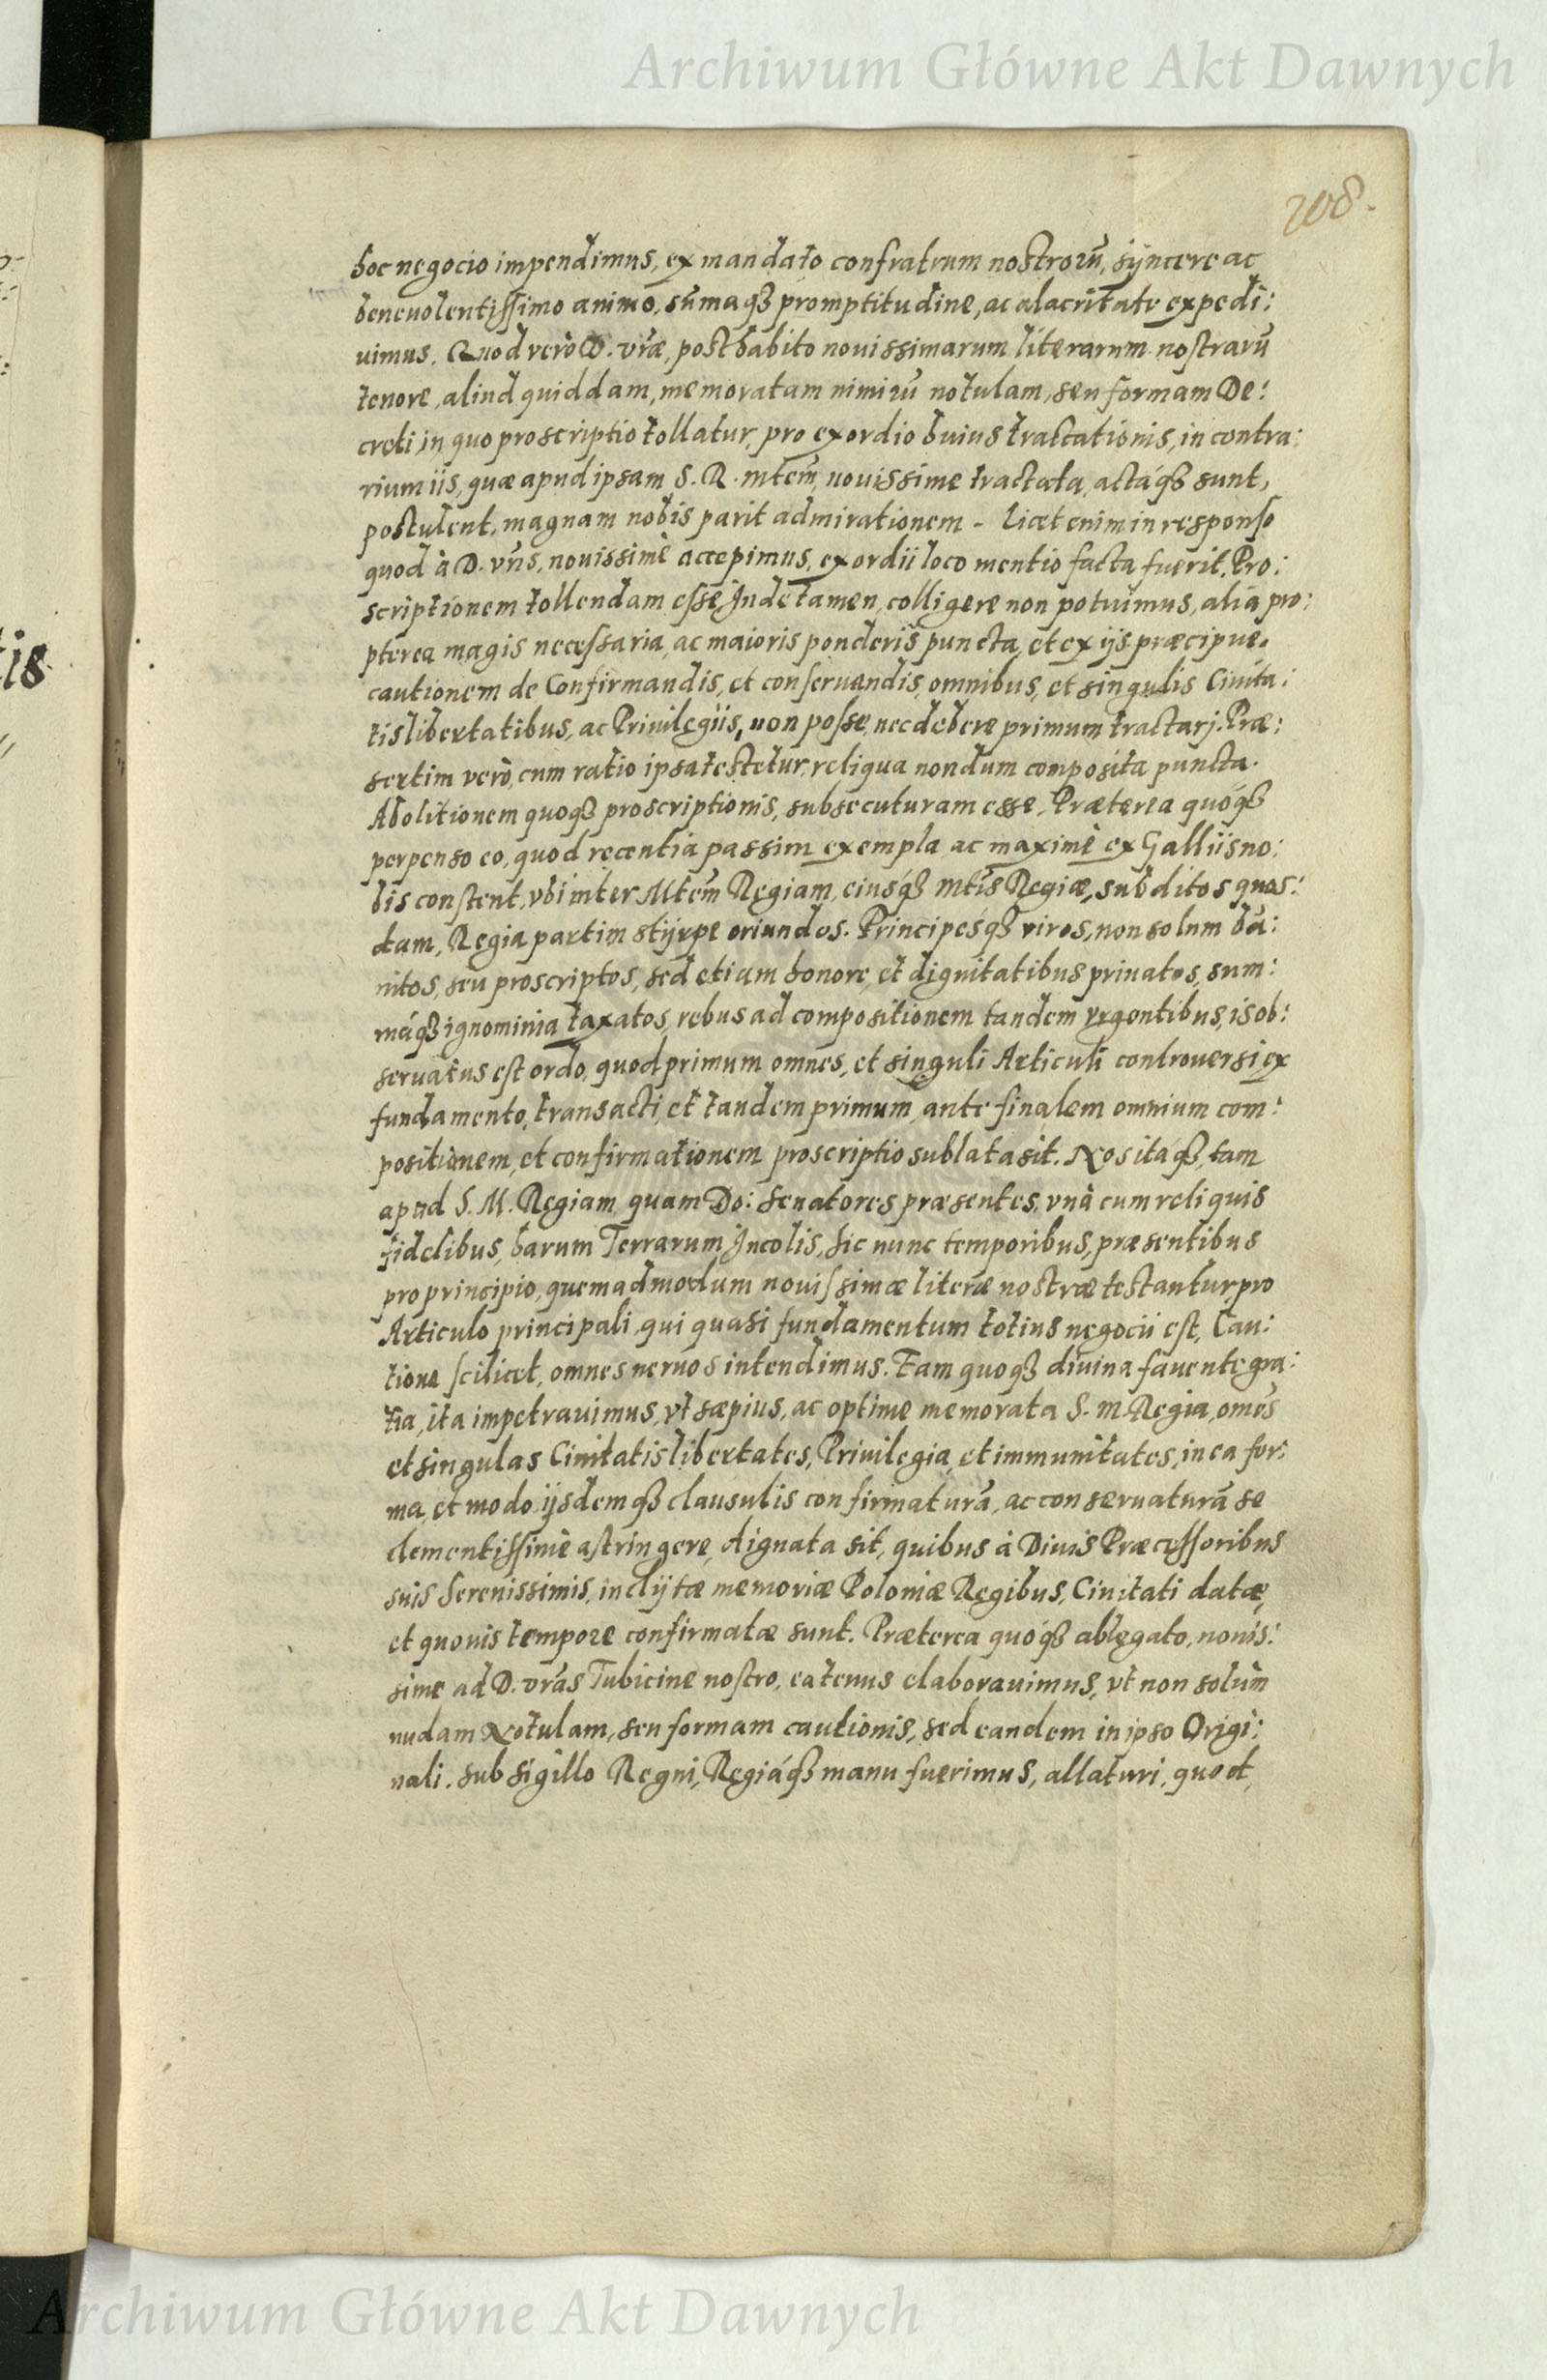 Archiwum Główne Akt Dawnych
208.
hoc negocio impendimus, ex mandato confratrum nostrorū, sÿncere ac
beneuolentissimo animo, sūmaqȝ promptitudine, ac alacritate expedi:
uimus. Quod verò D. vr̃æ, posthabito nouissimarum literarum nostrarū
tenore, aliud quiddam, memoratam nimirū notulam, seu formam De:
creti, in quo proscriptio tollatur, pro exordio huius tractationis, in contra:
rium iis, quæ apud ipsam S. R. mtem̃, nouissime tractata, actáqȝ sunt,
postulent, magnam nobis parit admirationem - licet enim in responso
quod à D. vr̃is, nouissimè accepimus, exordii loco mentio facta fuerit, Pro:
scriptionem tollendam esse Inde tamen, colligere non potuimus, alia pro:
pterea magis necessaria, ac maioris ponderis puncta, et ex ijs præcipue.
cautionem de Confirmandis, et conseruandis, omnibus, et singulis Ciuita:
tis libertatibus, ac Priuilegiis, non posse, nec debere primum tractarj. Præ:
sertim verò, cum ratio ipsa testetur, reliqua nondum composita puncta.
Abolitionem quoqȝ proscriptionis, subsecuturam esse. Præterea quóqȝ
perpenso eo, quod recentia passim exempla ac maximè ex Galliis no:
bis constent, vbi inter Mtem̃ Regiam, eiusqȝ mtis̃ Regiæ, subditos quos:
dam, Regia partim stÿrpe oriundos. Principésqȝ viros, non solum bā:
nitos, seu proscriptos, sed etiam honore, et dignitatibus priuatos, sum:
máqȝ ignominia taxatos, rebus ad compositionem tandem vrgentibus, is ob:
seruatus est ordo, quod primum omnes, et singuli Articuli controuersi ex
fundamento, transacti, et tandem primum, ante finalem omnium com:
positionem, et confirmationem proscriptio sublata sit. Nos itáqȝ, tam
apud S. M. Regiam quam Do: Senatores præsentes, vnà cum reliquis
fidelibus, harum Terrarum Incolis, hic nunc temporibus, præsentibus
pro principio, quemadmodum nouissimæ literæ nostræ testantur, pro
Articulo principali, qui quasi fundamentum totius negocii est, Cau:
tione scilicet, omnes neruos intendimus. Eam quoqȝ diuina fauente gra:
tia, ita impetrauimus, vt sæpius, ac optime memorata S. M. Regia, omēs
et singulas Ciuitatis libertates, Priuilegia, et immunitates, in ea for:
ma, et modo ijsdemqȝ clausulis confirmaturā, ac conseruaturā se
clementissimè astringere, dignata sit, quibus à Diuis Præcessoribus
suis Serenissimis, inclÿtæ memoriæ Poloniæ Regibus, Ciuitati datæ,
et quouis tempore confirmatæ sunt. Præterea quóqȝ ablegato, nouis:
sime ad D. vr̃as Tubicine nostro, eatenus elaborauimus, vt non solùm
nudam Notulam, seu formam cautionis, sed eandem in ipso Origi:
nali. sub sigillo Regni, Regiáqȝ manu fuerimus, allaturi, quod,
tis
Archiwum Główne Akt Dawnych